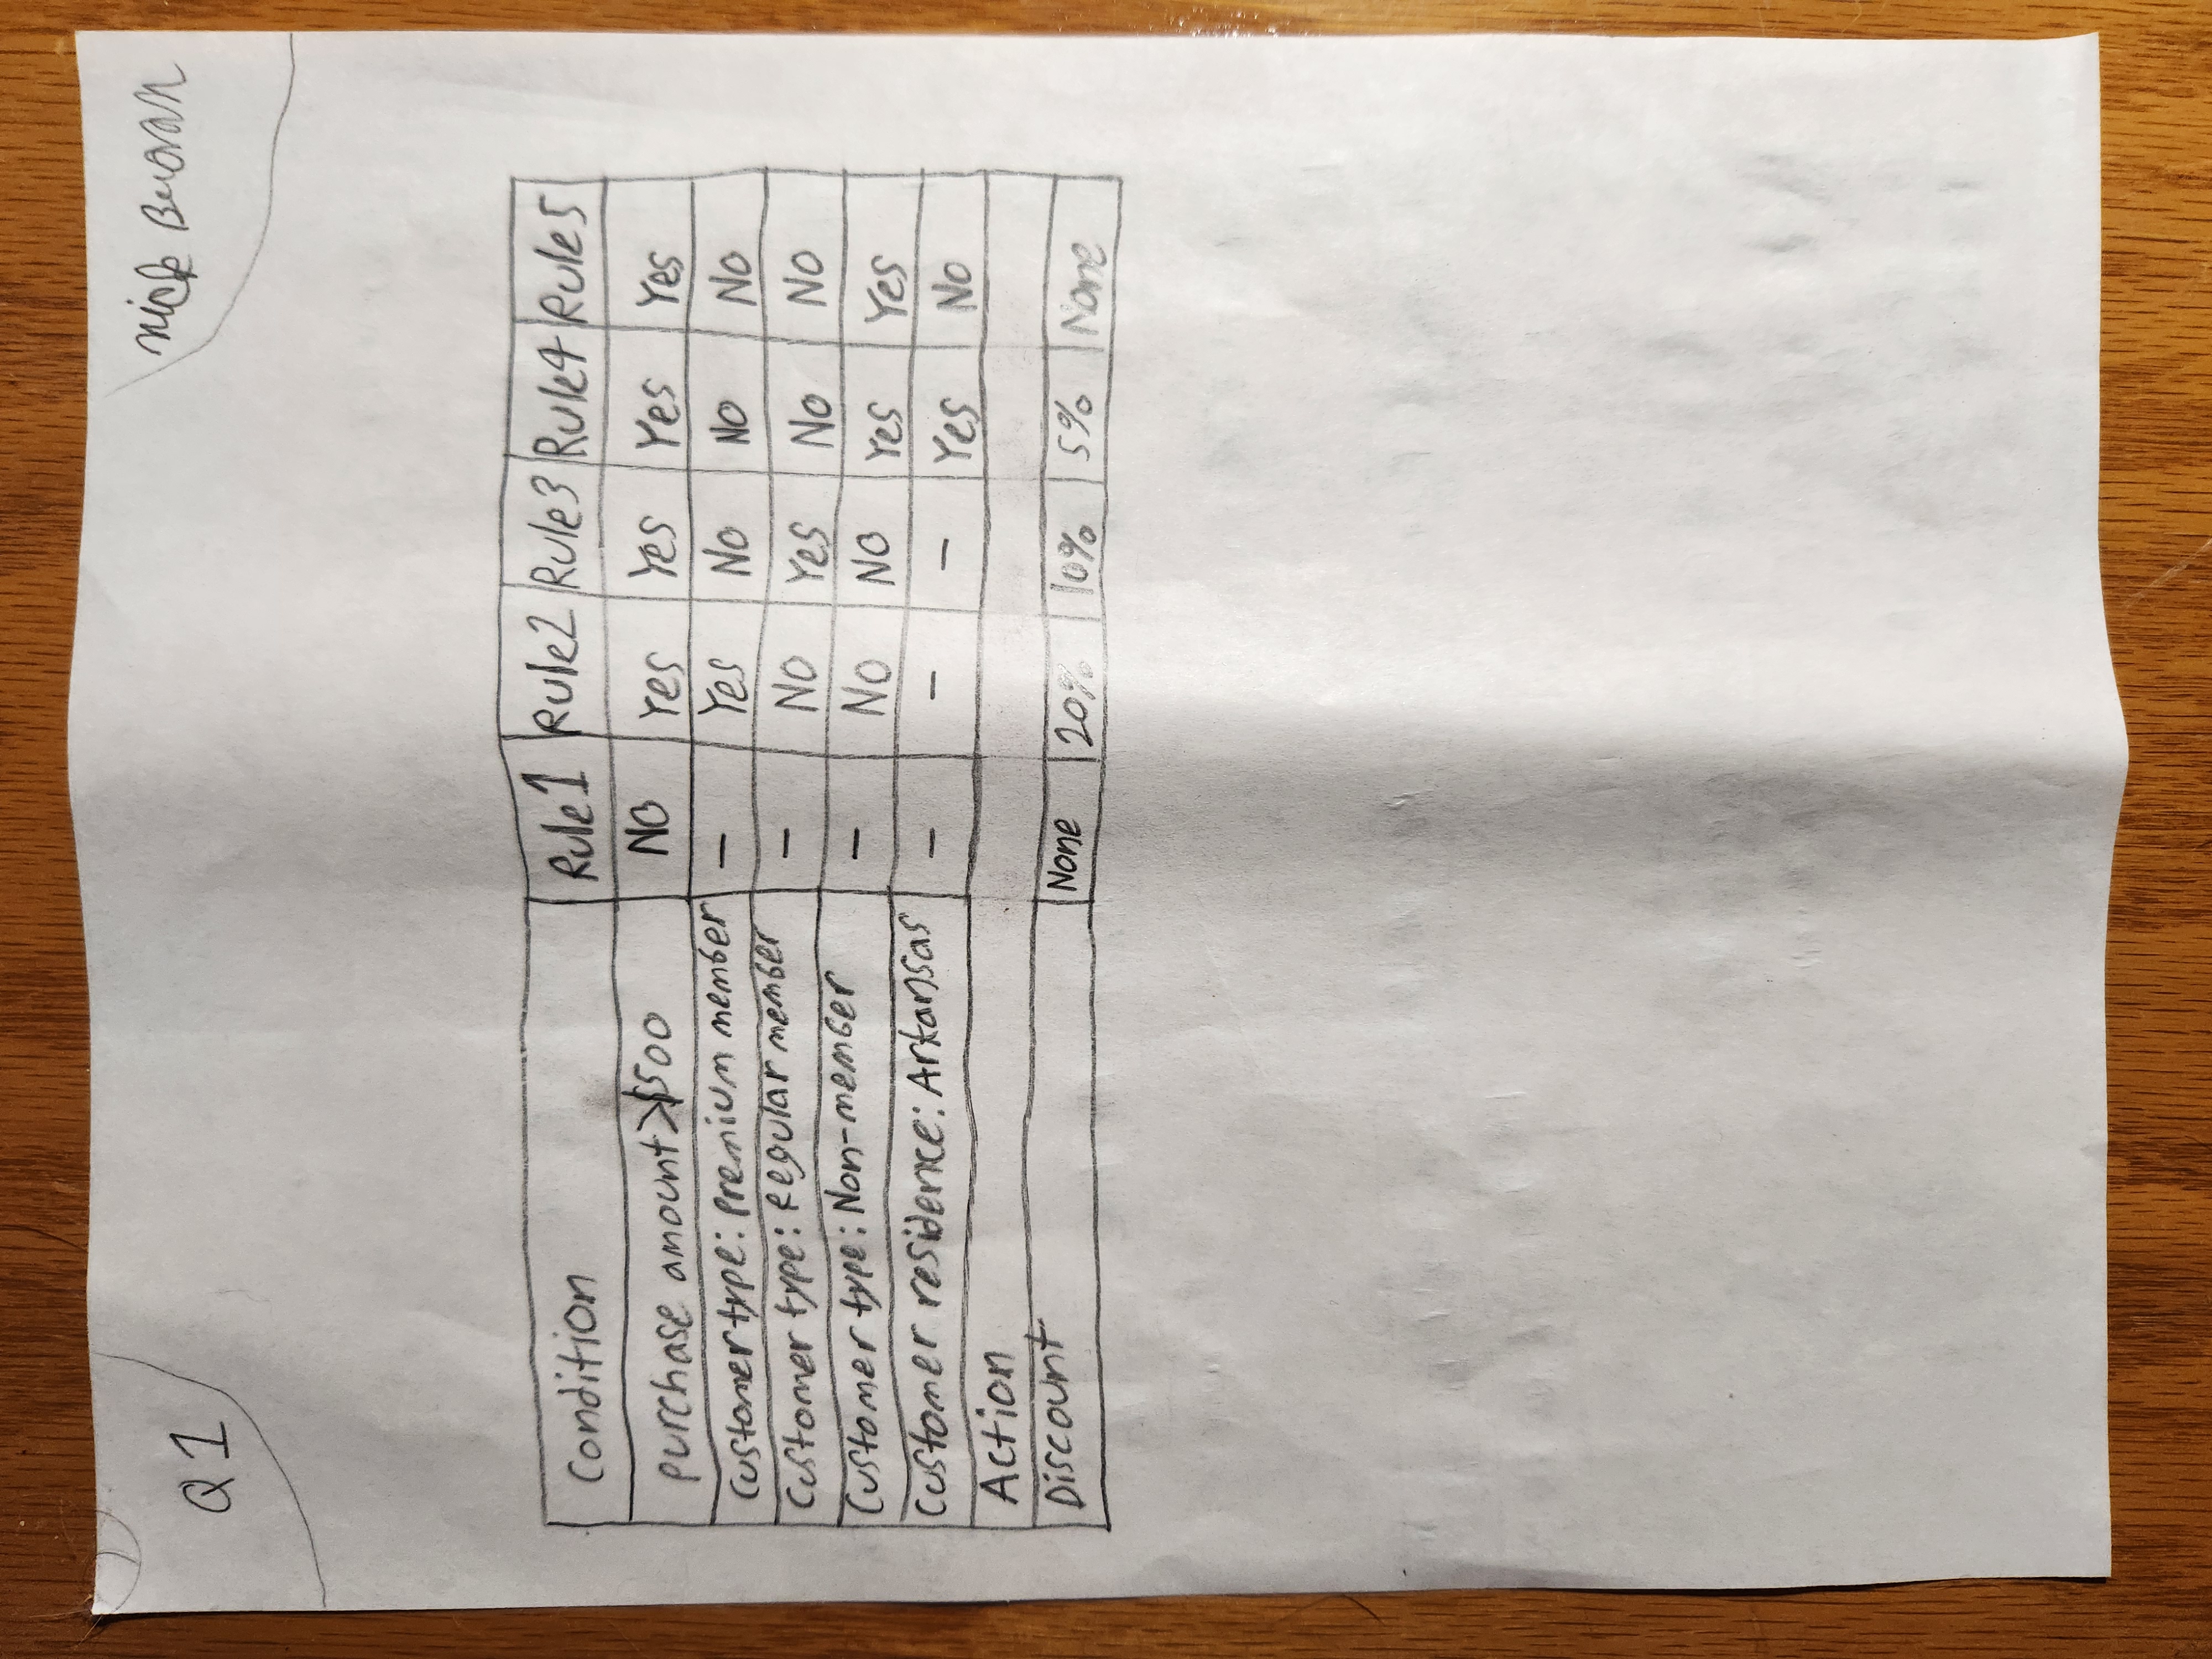 Q1
Nick Brown
Condition Rule1 Rule2 Rule3 Rule4 Rule5
purchase amount >$500 NO Yes Yes Yes Yes
Customer type: premium member - Yes NO NO NO
Customer type: Regular member - NO Yes NO NO
Customer type: Non-member - NO NO Yes Yes
Customer residence: Arkansas - - - Yes NO
Action
Discount None 20% 10% 5% None